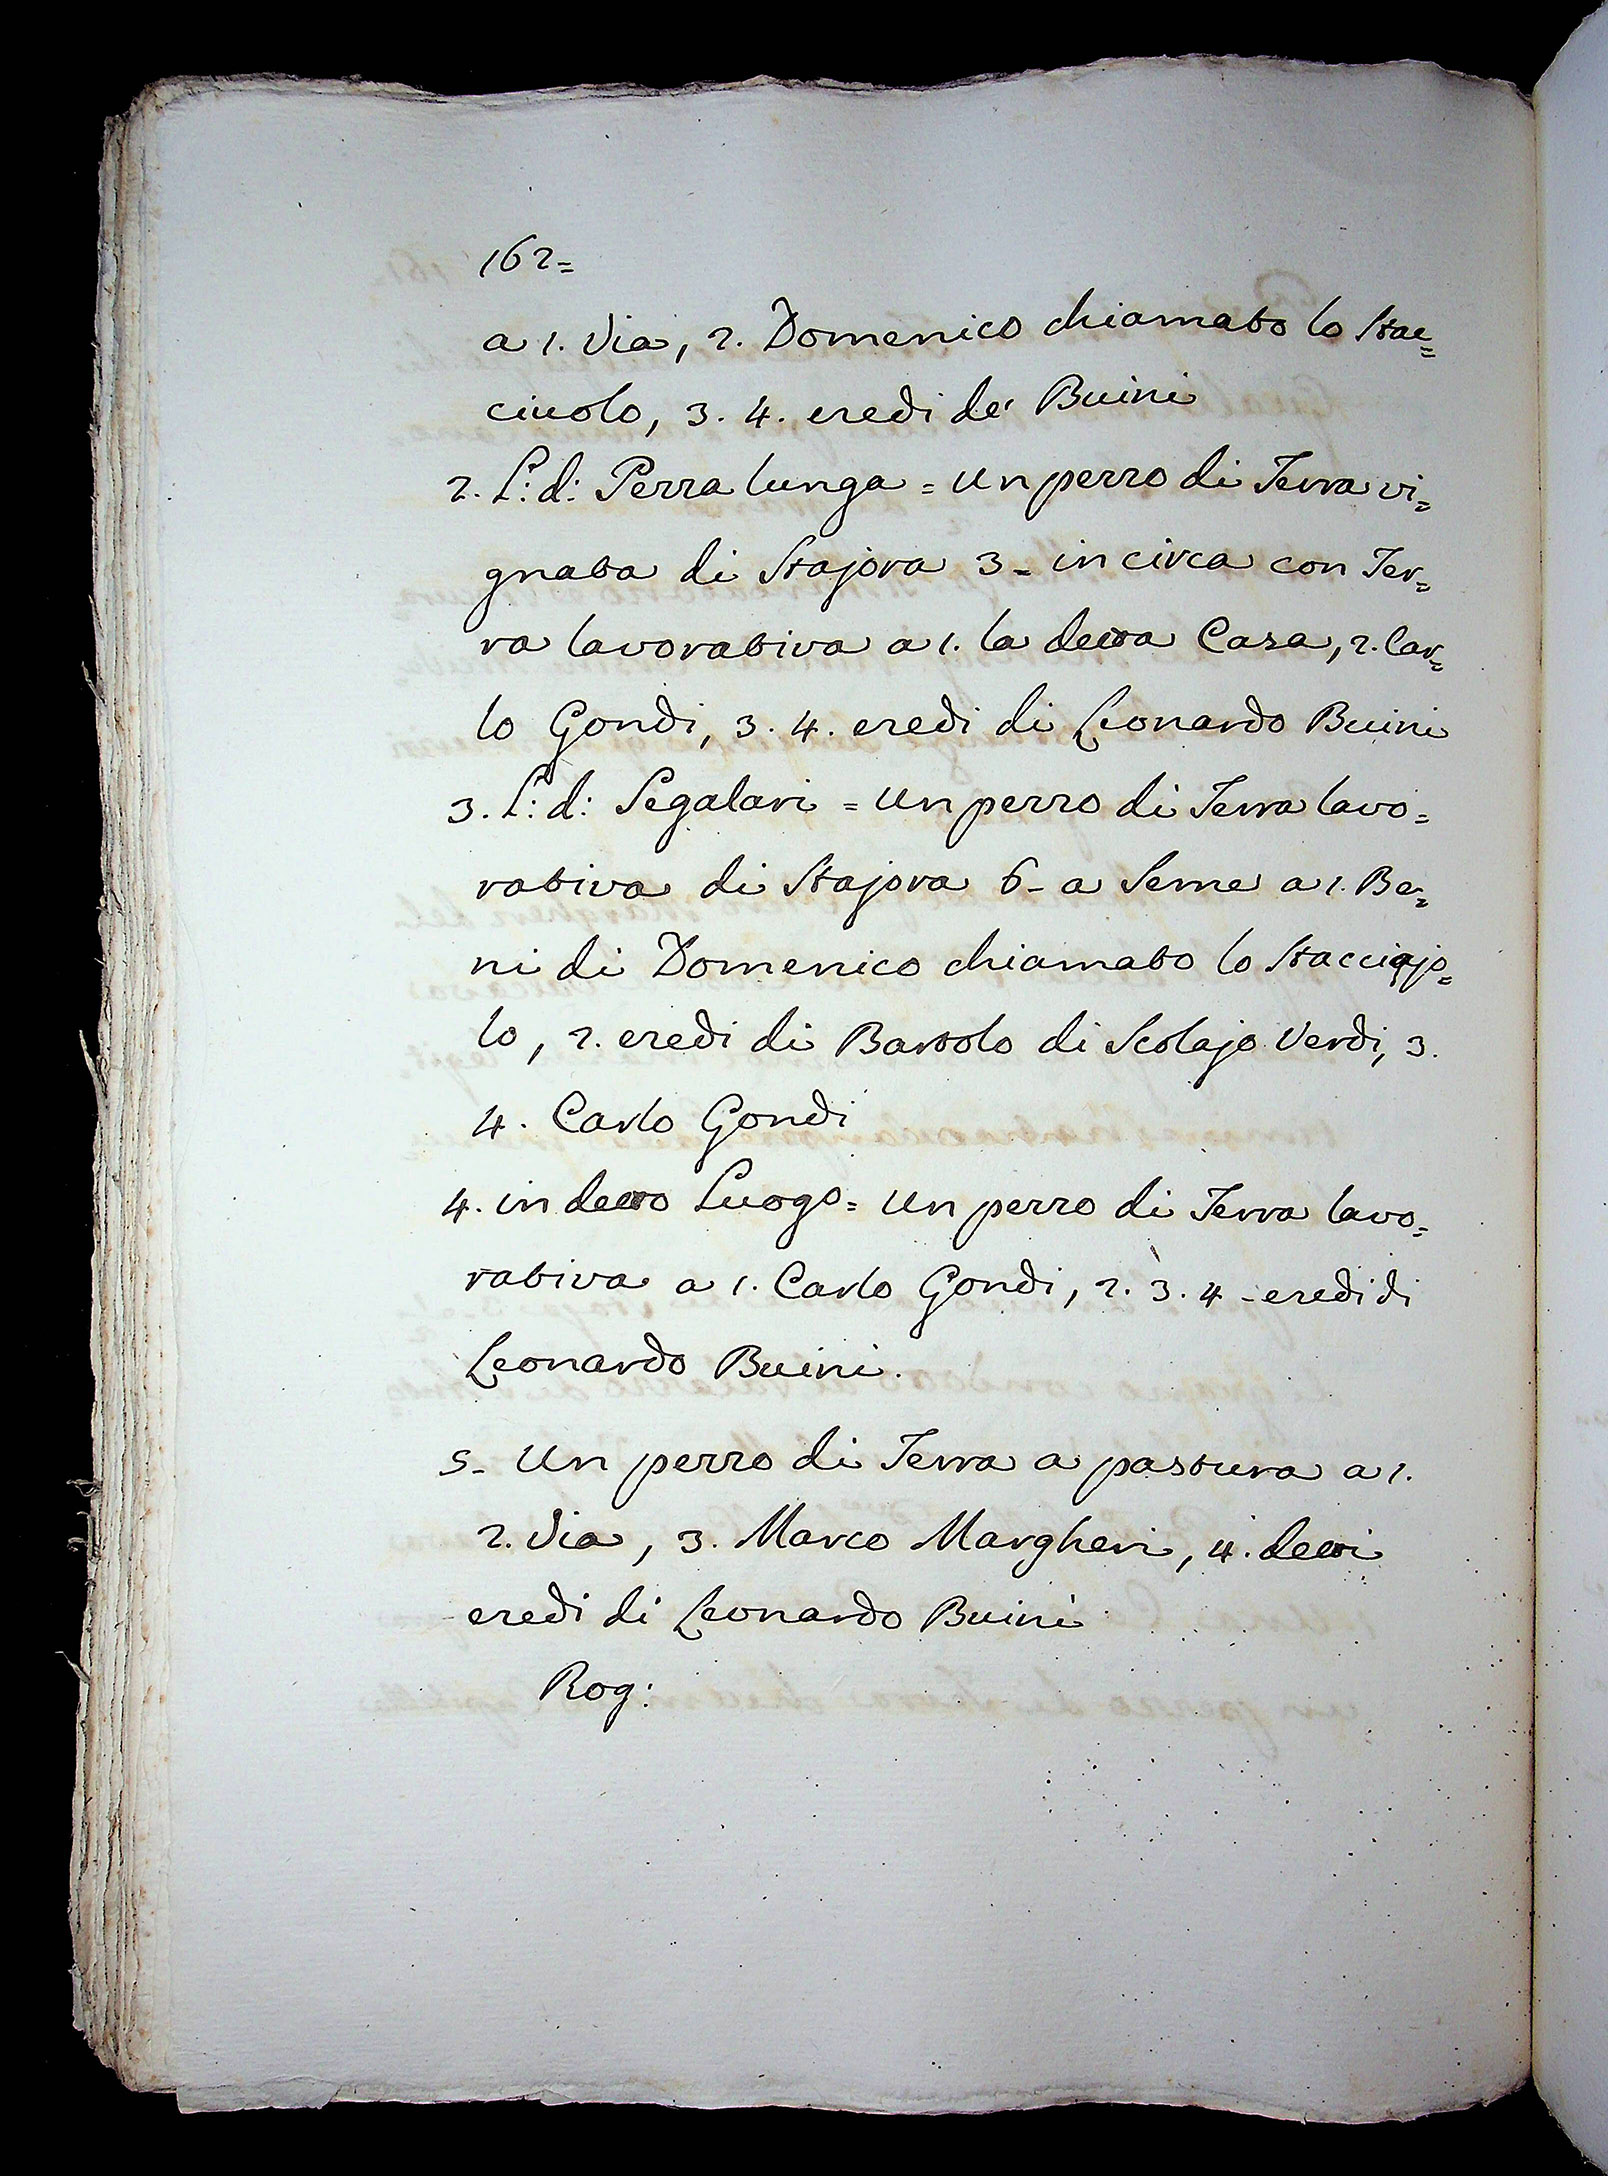 162=
a 1. Via, 2. Domenico chiamato lo Stac=
ciuolo, 3. 4. eredi de' Buini
2. L: d: Pezza lunga = Un pezzo di Terra vi=
gnata di Stajora 3- in circa con Ter=
ra lavorativa a 1. la detta Casa, 2. Car=
lo Gondi, 3. 4. eredi di Leonardo Buini
3. L: d: Segalari = Un pezzo di Terra lavo=
rativa di Stajora 6- a Seme a 1. Be=
ni di Domenico chiamato lo Stacciajo=
lo, 2. eredi di Bartolo di Scolajo Verdi, 3.
4. Carlo Gondi
4. in detto Luogo = Un pezzo di Terra lavo=
rativa a 1. Carlo Gondi, 2. 3. 4 - eredi di
Leonardo Buini.
5- Un pezzo di Terra a pastura a 1.
2. Via, 3. Marco Margheri, 4. detti
eredi di Leonardo Buini
Rog: